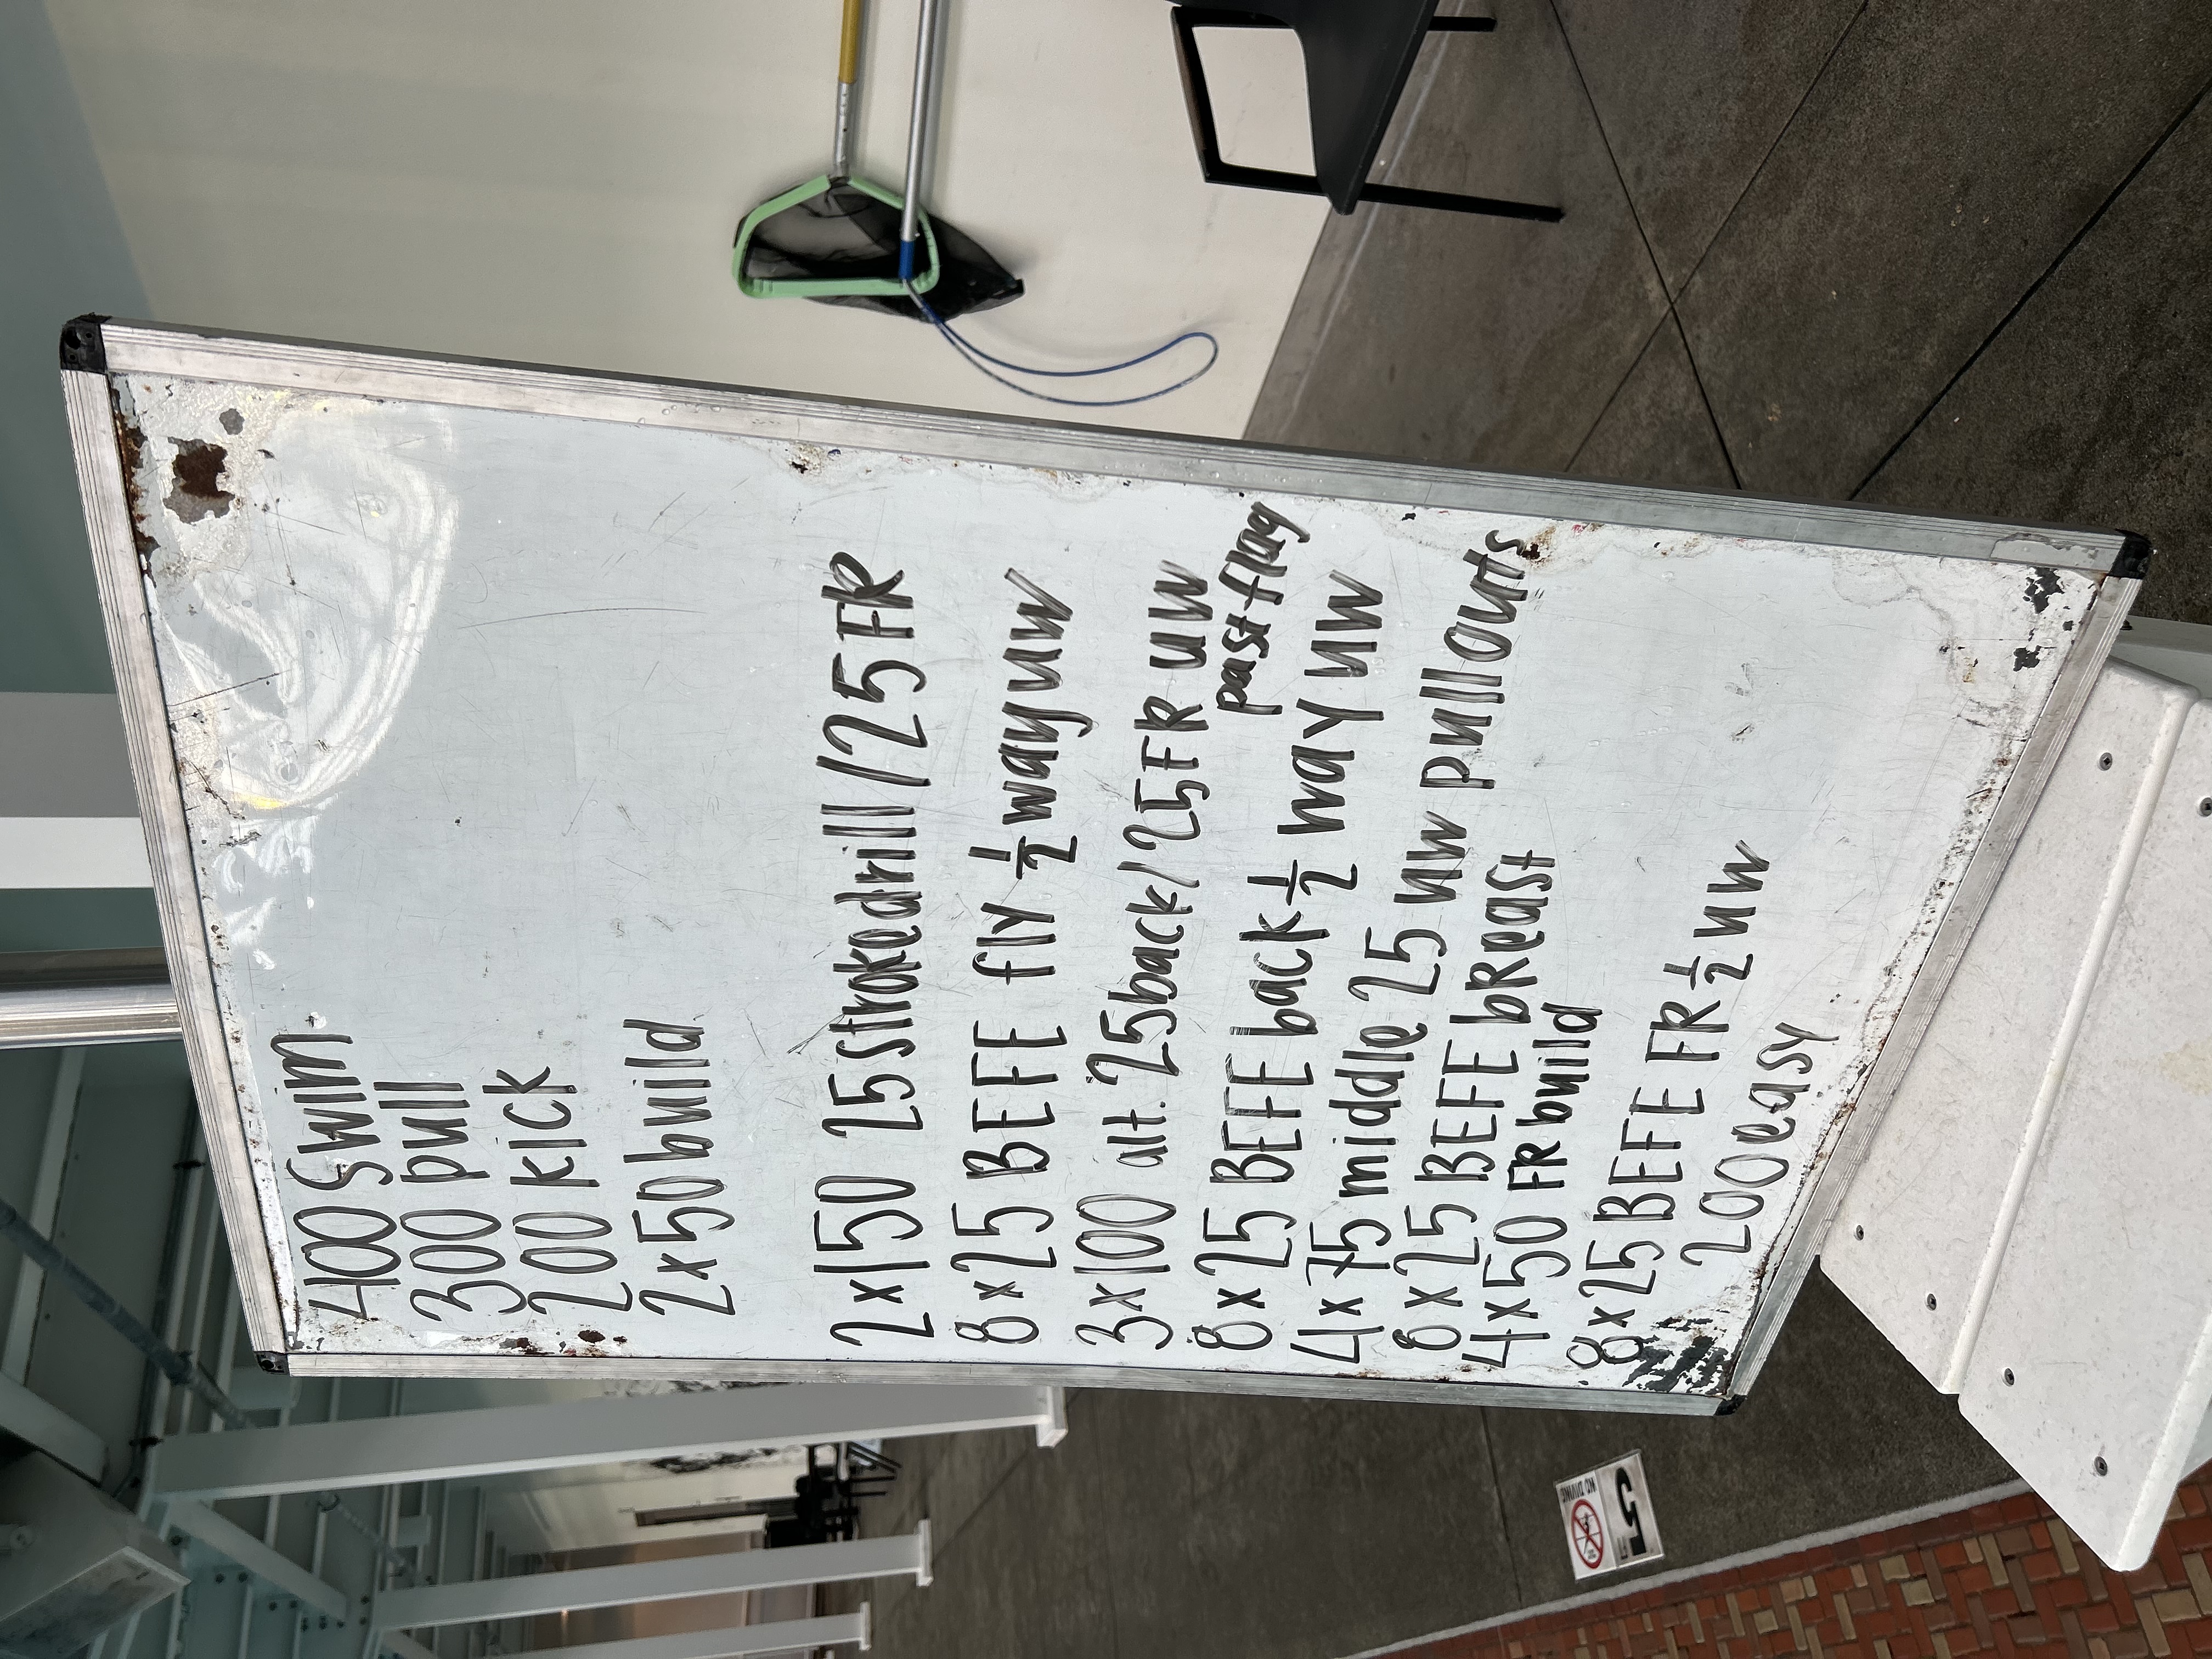 400 swim
300 pull
200 kick
2x50 build
2x150 25 strokedrill/25 FR
8x25 BEFE fly 1/2 way uw
3x100 alt. 25back/25FR uw
past flag
8x25 BEFE back 1/2 way uw
4x75 middle 25 uw pullouts
8x25 BEFE bReast
4x50 FR build
8x25 BEFE FR 1/2 uw
200 easy
5 FT
NO DIVING